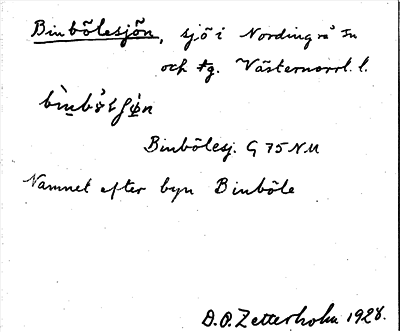 Binbölesjön, sjö i Nordingrå sn
och tg. Västernorrl. l.
Binbölesj. G 75 NU
Namnet efter byn Binböle
D.O. Zetterholm 1928.